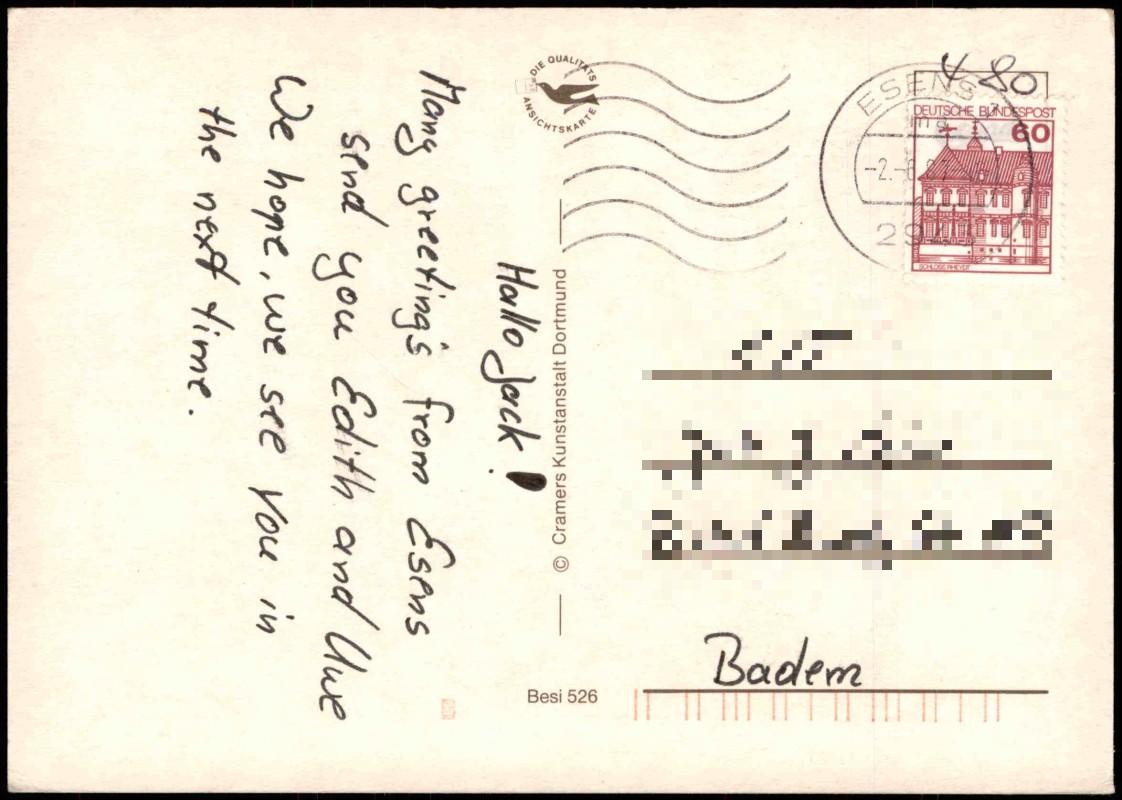 Hallo Jack!
Many greeting's from Esens
send you Edith and Uwe
We hope, we see you in
the next time.
DIE QUALITÄTS
ANSICHTSKARTE
© Cramers Kunstanstalt Dortmund
Besi 526
ESENS
80
DEUTSCHE BUNDESPOST
60
SCHLOSS RHEYDT
Badem